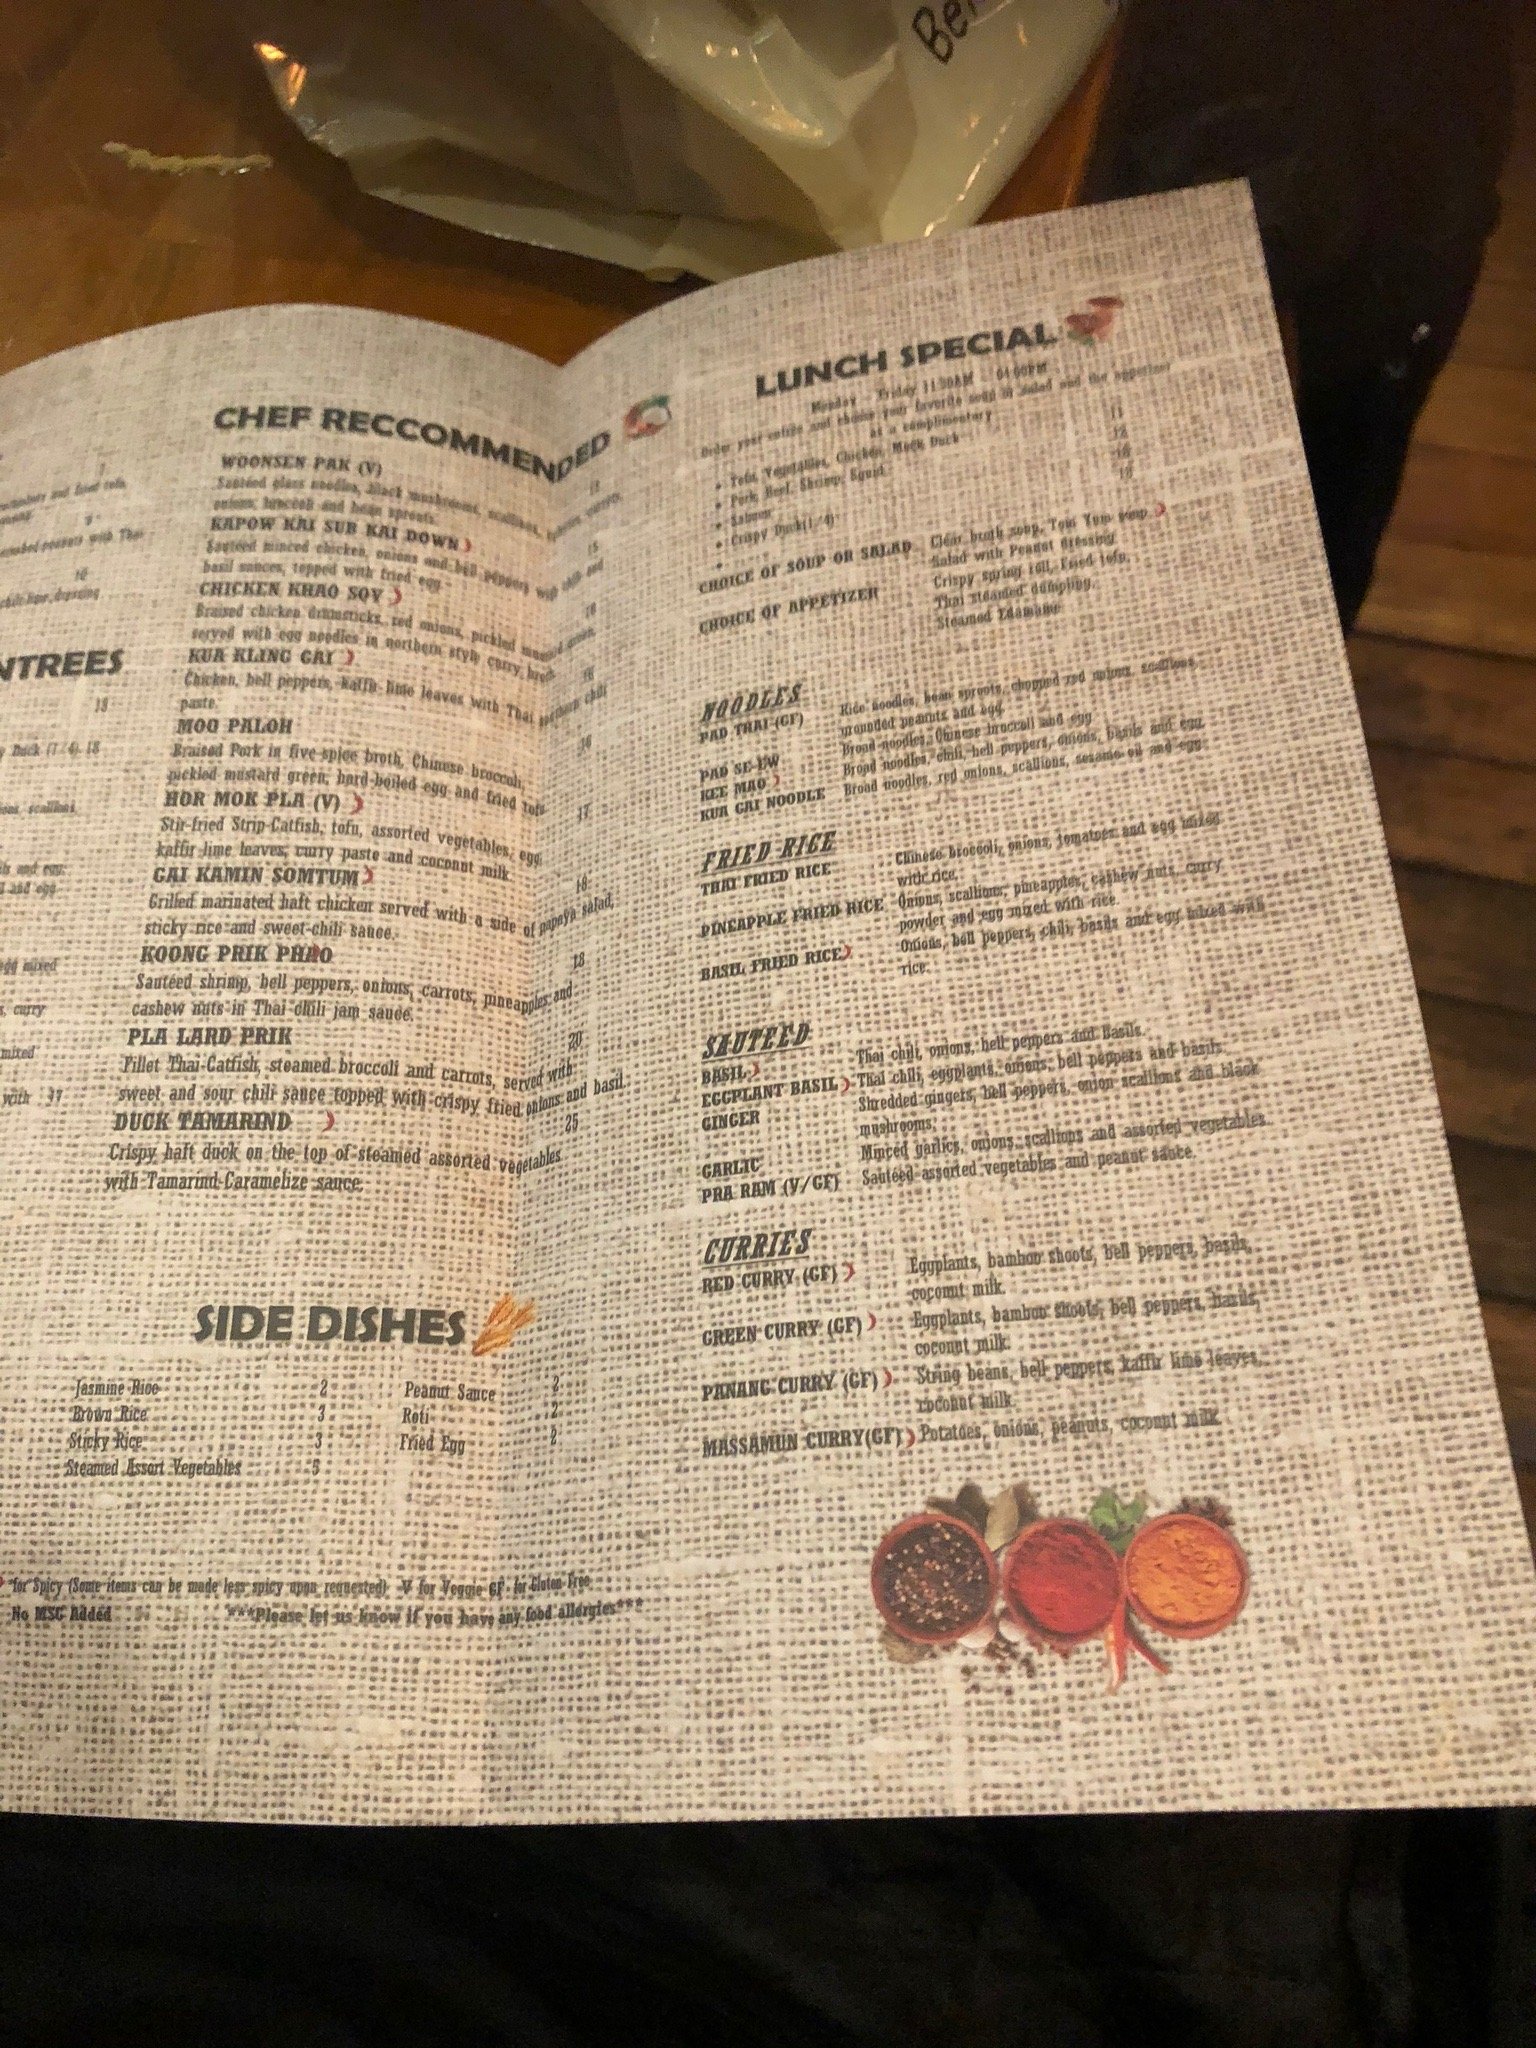 Ber
CHEF RECCOMMENDED
WOONSEN PAK (V)
Sauteed glass noodles, black mushrooms, scallions,
onions, broccoli and bean sprouts.
KAPOW KAI SUB KAI DOWN
15
Sauteed minced chicken, onions and bell peppers with chili and
basil sauces, topped with fried egg
CHICKEN KHAO SOY
16
Braised chicken drumsticks, red onions, pickled mustard green,
served with egg noodles in northern style curry broth
KUA KLING GAI
16
Chicken, bell peppers, kaffir lime leaves with Thai southern chili
paste.
MOO PALOH
16
Braised Pork in five-spice broth, Chinese broccoli,
pickled mustard green, hard-boiled egg and fried tofu
HOR MOK PLA (V)
17
Stir-fried Strip-Catfish, tofu, assorted vegetables, egg
kaffir lime leaves, curry paste and coconut milk
GAI KAMIN SOMTUM
18
Grilled marinated haft chicken served with a side of papaya salad,
sticky rice and sweet-chili sauce.
KOONG PRIK PHAO
18
Sauteed shrimp, bell peppers, onions, carrots, pineapples and
cashew nuts in Thai chili jam sauce.
PLA LARD PRIK
20
Fillet Thai-Catfish, steamed broccoli and carrots, served with
sweet and sour chili sauce topped with crispy fried onions and basil.
DUCK TAMARIND
25
Crispy haft duck on the top of steamed assorted vegetables
with Tamarind Caramelize sauce.
SIDE DISHES
Jasmine Rice 2
Brown Rice 3
Sticky Rice 3
Steamed Assort Vegetables 5
Peanut Sauce 2
Roti 2
Fried Egg 2
for Spicy (Some items can be made less spicy upon requested) V for Veggie GF for Gluten Free
No MSG Added ***Please let us know if you have any food allergies***
NTREES
18
Duck (1/4) 18
scallions
and egg
and egg
egg mixed
curry
mixed
with 17
LUNCH SPECIAL
Monday - Friday 11:30AM - 04:00PM
Order your entree and choose your favorite soup or salad and the appetizer
as a complimentary
Tofu, Vegetables, Chicken, Mock Duck 11
Pork, Beef, Shrimp, Squid 12
Salmon
Crispy Duck(1/4)
CHOICE OF SOUP OR SALAD Clear broth soup, Tom Yum soup
Salad with Peanut dressing
CHOICE OF APPETIZER Crispy spring roll, Fried tofu,
Thai steamed dumpling,
Steamed Edamame
NOODLES
PAD THAI (GF) Rice noodles, bean sprouts, chopped red onions, scallions,
grounded peanuts and egg
PAD SE-EW Broad noodles, Chinese broccoli and egg
KEE MAO Broad noodles, chili, bell peppers, onions, basils and egg
KUA GAI NOODLE Broad noodles, red onions, scallions, sesame oil and egg
FRIED RICE
THAI FRIED RICE Chinese broccoli, onions, tomatoes and egg mixed
with rice.
PINEAPPLE FRIED RICE Onions, scallions, pineapples, cashew nuts, curry
powder and egg mixed with rice.
BASIL FRIED RICE Onions, bell peppers, chili, basils and egg mixed with
rice.
SAUTEED
BASIL Thai chili, onions, bell peppers and Basils.
EGGPLANT BASIL Thai chili, eggplants, onions, bell peppers and basils.
GINGER Shredded gingers, bell peppers, onion scallions and black
mushrooms.
GARLIC Minced garlics, onions, scallions and assorted vegetables.
PRA RAM (V/GF) Sauteed assorted vegetables and peanut sauce.
CURRIES
RED CURRY (GF) Eggplants, bamboo shoots, bell peppers, basils,
coconut milk.
GREEN CURRY (GF) Eggplants, bamboo shoots, bell peppers, basils,
coconut milk.
PANANG CURRY (GF) String beans, bell peppers, kaffir lime leaves,
coconut milk.
MASSAMUN CURRY(GF) Potatoes, onions, peanuts, coconut milk.